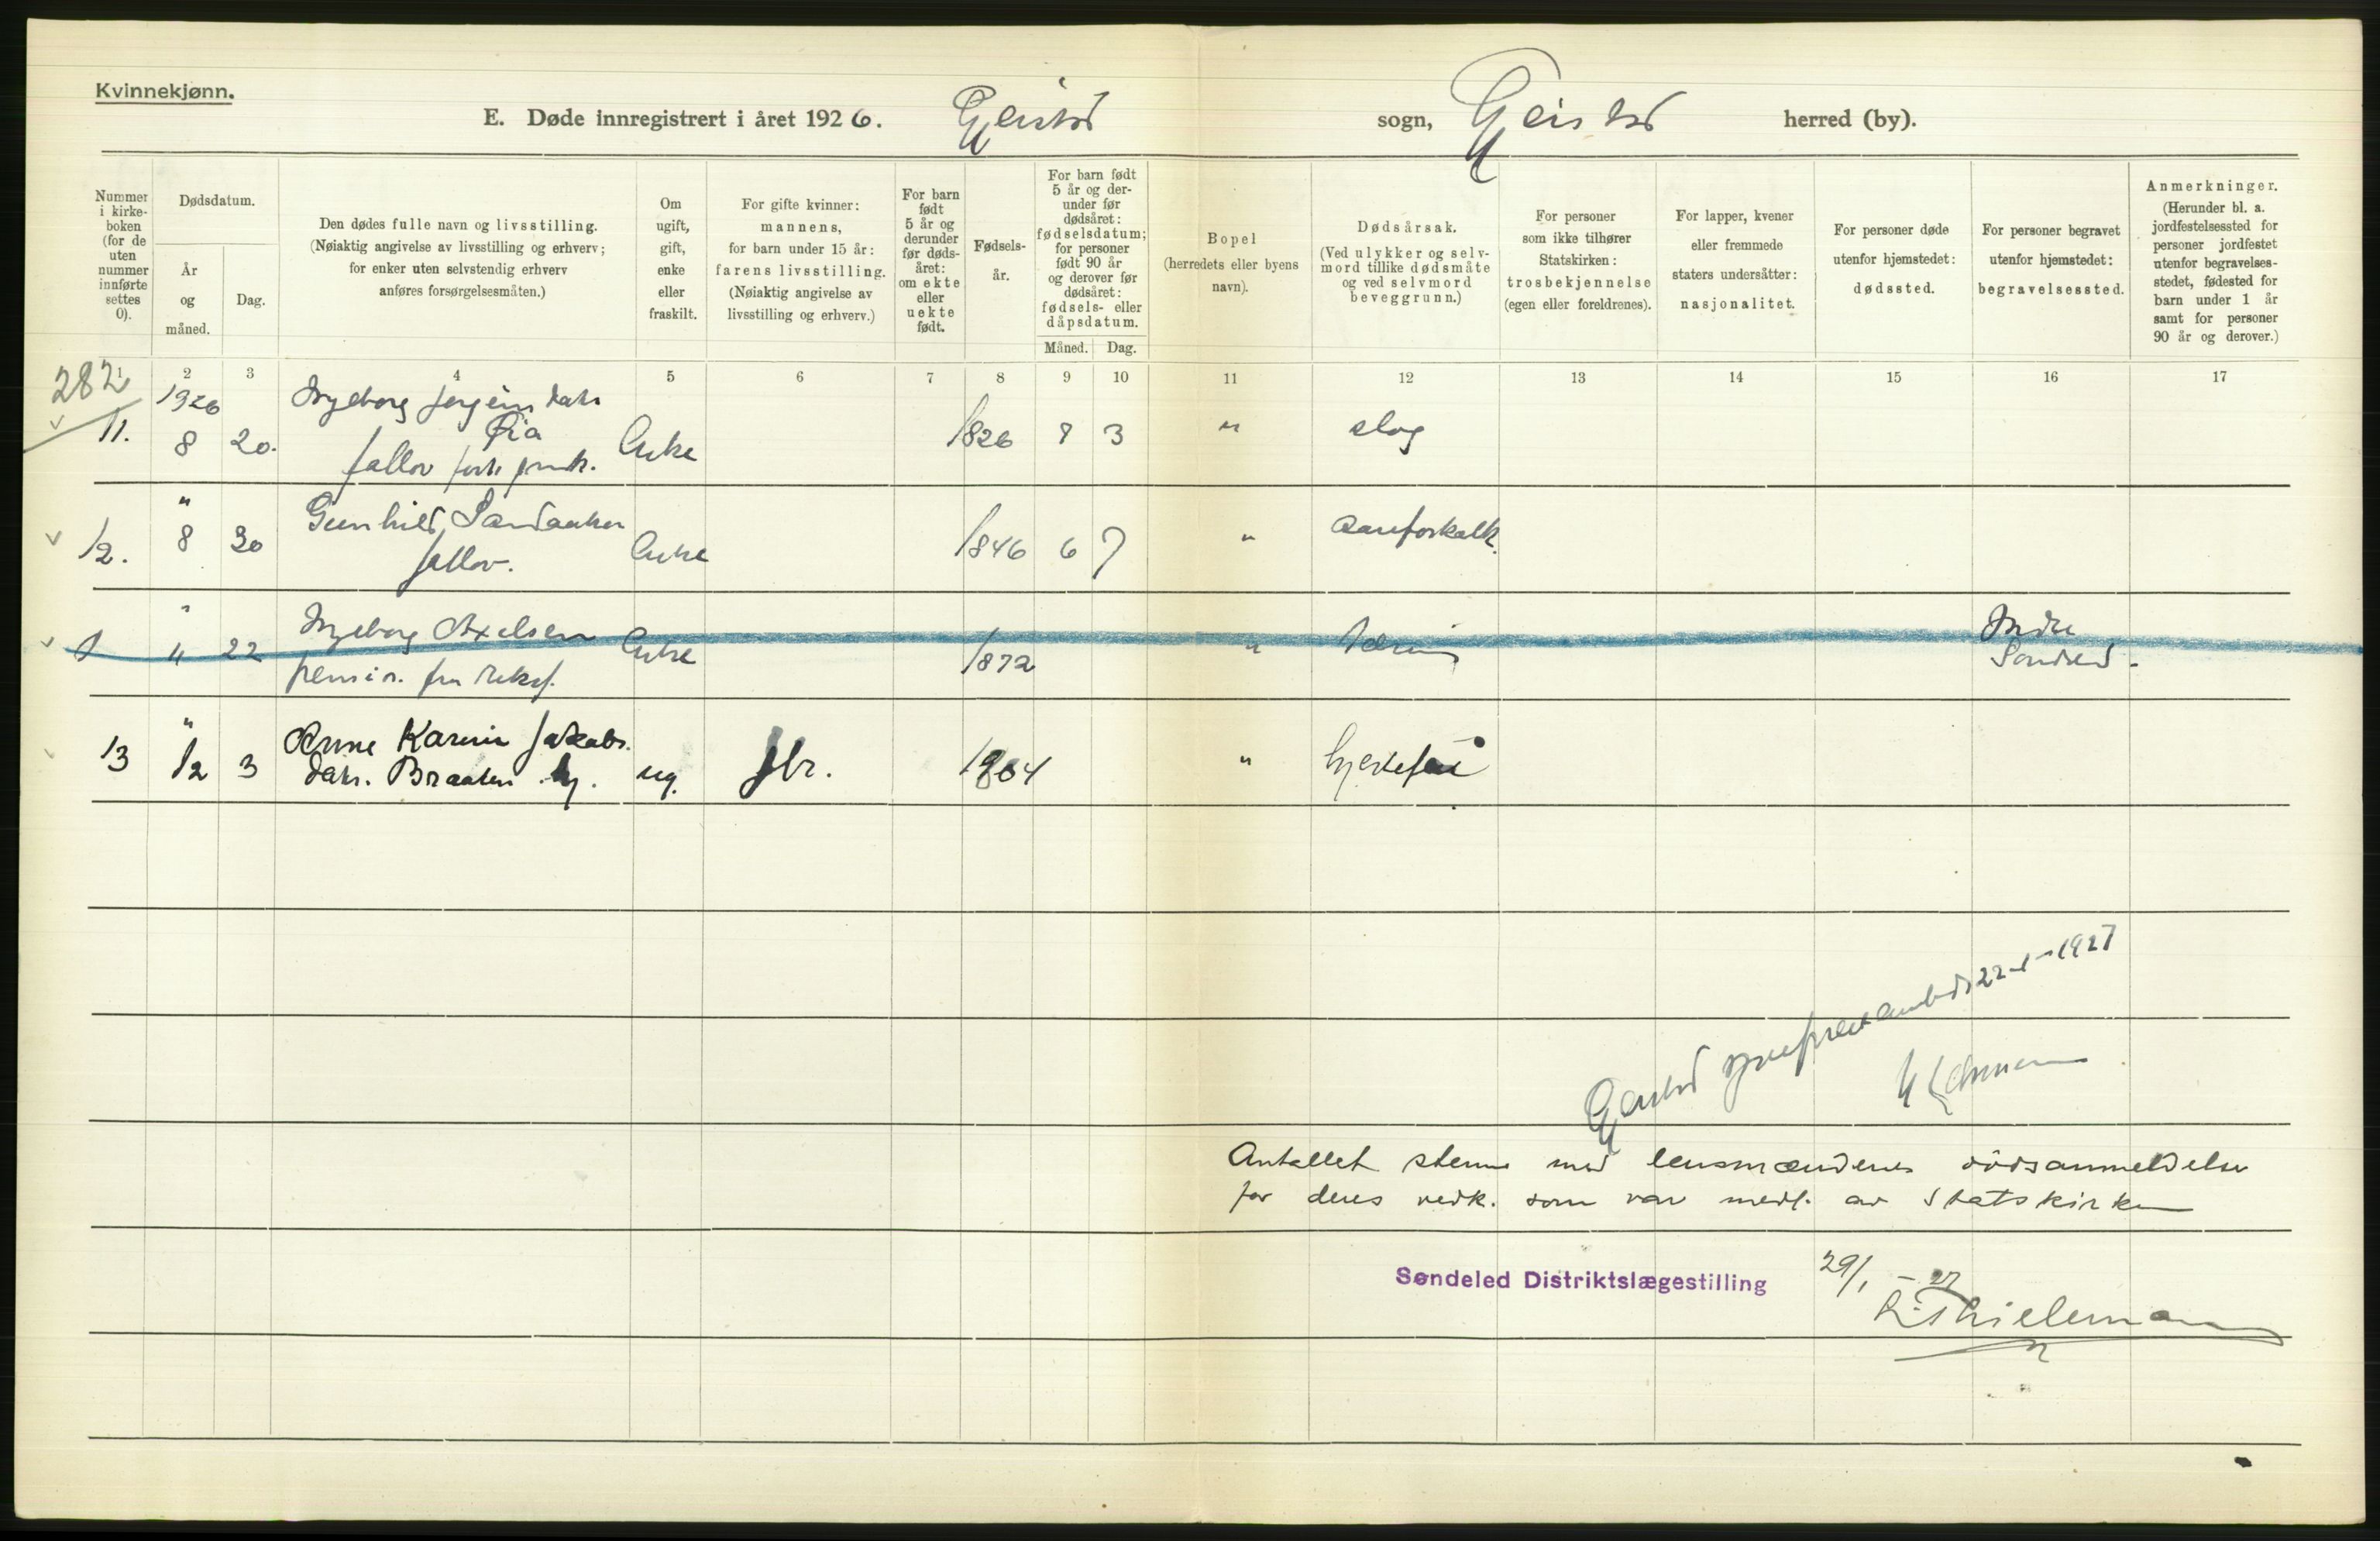 Kvinnekjønn.
E. Døde innregistrert i året 1926. Gjerstad sogn, Gjerstad herred (by).
Nummer i kirke-boken (for de uten nummer innførte settes 0).
Dødsdatum.
År og måned.
Dag.
Den dødes fulle navn og livsstilling.
(Nøiaktig angivelse av livsstilling og erhverv;
for enker uten selvstendig erhverv
anføres forsørgelsesmåten.)
Om
ugift,
gift,
enke
eller
fraskilt.
For gifte kvinner:
mannens,
for barn under 15 år:
farens livsstilling.
(Nøiaktig angivelse av
livsstilling og erhverv.)
For barn
født
5 år og
derunder
før døds-
året:
om ekte
eller
uekte
født.
Fødsels-
år.
For barn født
5 år og der-
under før
dødsåret:
fødselsdatum;
for personer
født 90 år
og derover før
dødsåret:
fødsels- eller
dåpsdatum.
Måned. Dag.
Bopel
(herredets eller byens
navn).
Dødsårsak.
(Ved ulykker og selv-
mord tillike dødsmåte
og ved selvmord
beveggrunn.)
For personer
som ikke tilhører
Statskirken:
trosbekjennelse
(egen eller foreldrenes).
For lapper, kvener
eller fremmede
staters undersåtter:
nasjonalitet.
For personer døde
utenfor hjemstedet:
dødssted.
For personer begravet
utenfor hjemstedet:
begravelsessted.
Anmerkninger.
(Herunder bl. a.
jordfestelsessted for
personer jordfestet
utenfor begravelses-
stedet, fødested for
barn under 1 år
samt for personer
90 år og derover.)
1 2 3 4 5 6 7 8 9 10 11 12 13 14 15 16 17
282
1926 Ingeborg Jørgens datr
11. 8 20. Øia Enke 1826 8 3 " slag
"
12. 8 30 Gunhild Sandaaker Enke 1846 6 7 " Aareforkalk.
"
1 11 22 Ingeborg Axelsen Enke 1872 " Indre
Sondeled.
"
13 12 3 Anne Karine Jakobs
datr. Braaten ug. gbr. 1904 " hjertefeil
Gjerstad sogneprestembede 22-1-1927
Antallet stemmer med lensmændenes dödsanmeldelse
for deres vedk. som var medl. av Statskirken
Søndeled Distriktslægestilling 29/1 - 27
R. Thielemann